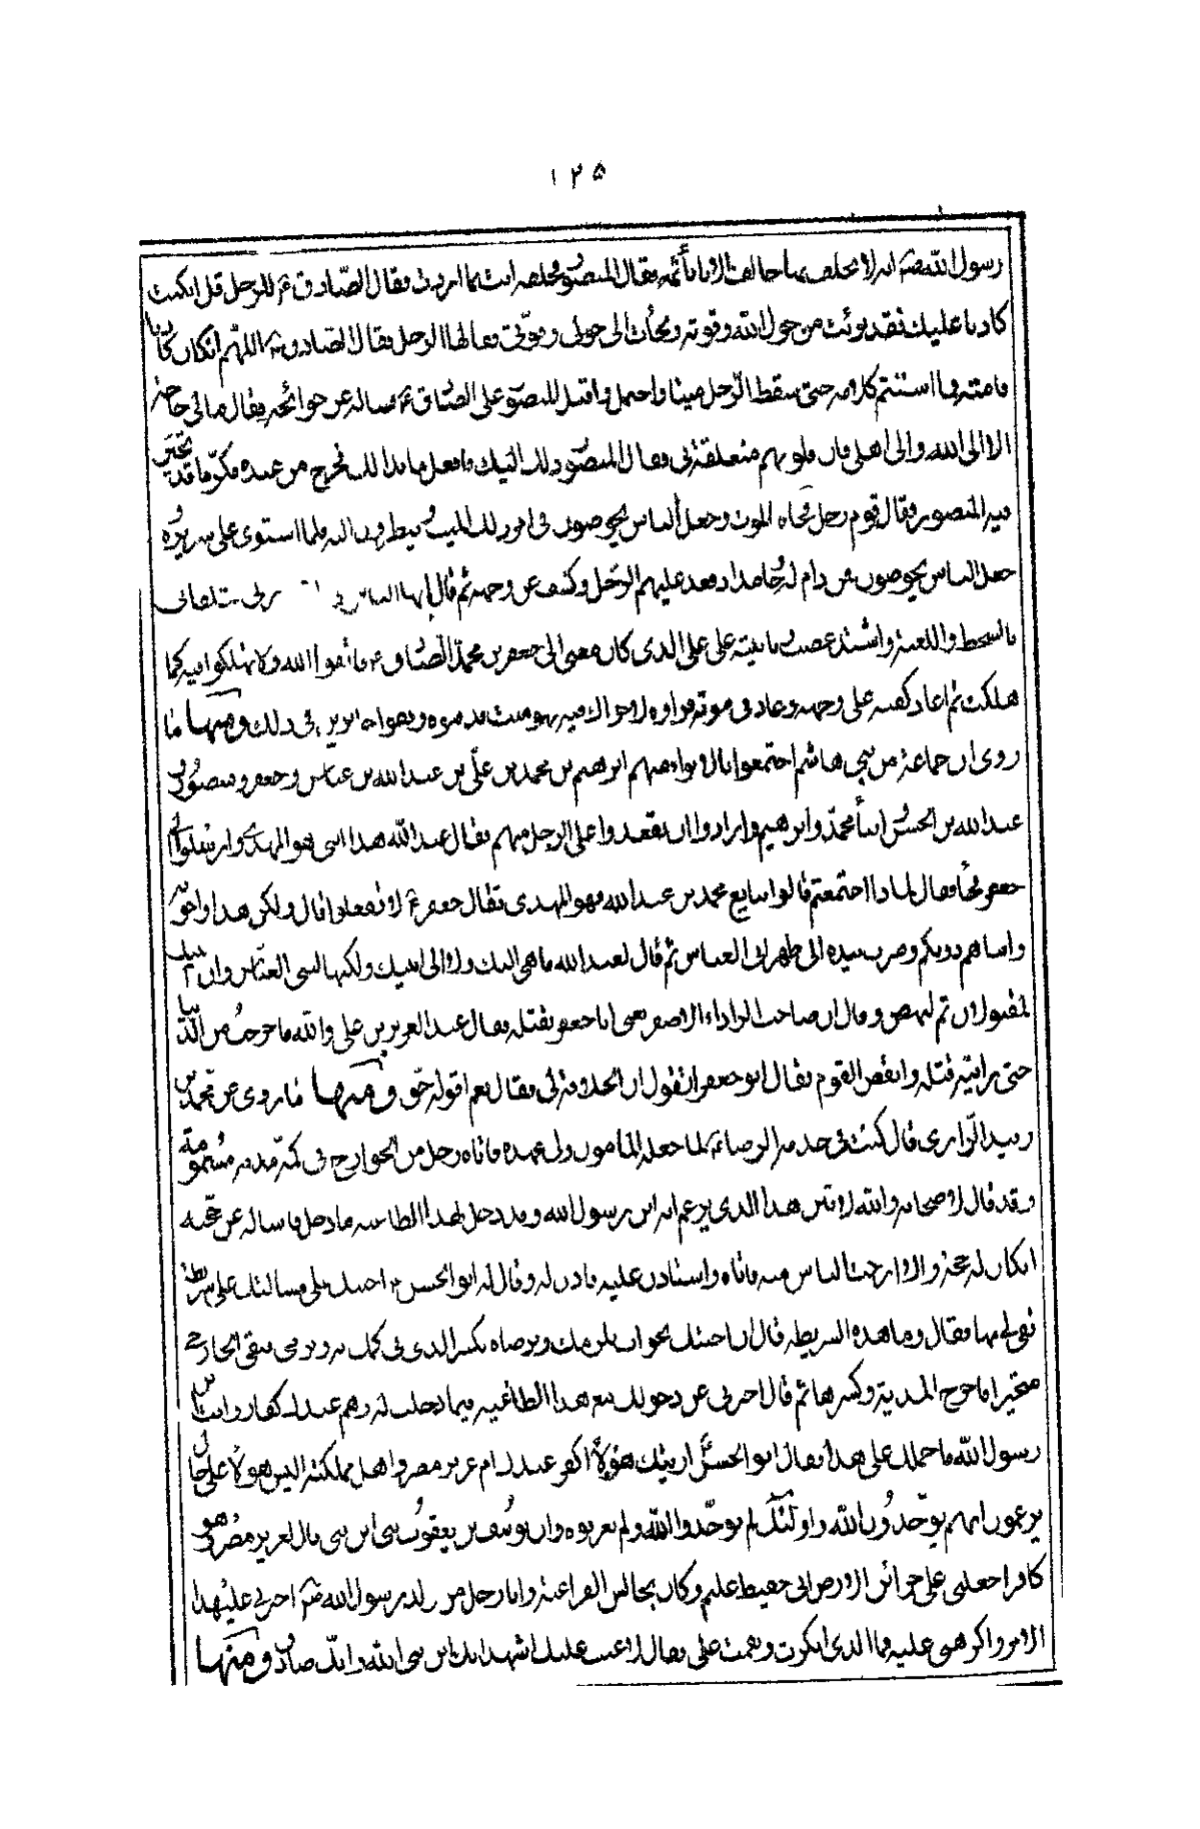 ١٢٥
رسول الله ص انه لا يحلف بها حالف الا باء بأثمه فقال المنصور فحلفه انت بما اردت فقال الصادق ع للرجل قل ان كنت
كاذبا عليك فقد برئت من حول الله وقوته ولجأت الى حولى وقوتى فقالها الرجل فقال الصادق ع اللهم ان كان كاذبا
فامته فما استتم كلامه حتى سقط الرجل ميتا واحتمل واقبل المنصور على الصادق ع فساله عن حوائجه فقال ما لى حاجة
الا الى الله والى اهلى فان قلوبهم متعلقة بى فقال المنصور ذلك اليك فافعل ما بدا لك فخرج من عنده مكرما قد تحير
فيه المنصور فقال قوم رجل فجاه الموت وجعل الناس يخوضون فى امر ذلك الميت وينظرون اليه فلما استوى على سريره
جعل الناس يخوضون فمن ذام له وحامد اذ قعد عليهم الرجل وكشف عن وجهه ثم قال ايها الناس ربى تلقانى
بالسخط واللعنة واشتد غضب على على الذى كان منى الى جعفر بن محمد الصادق ع فاتقوا الله ولا تهلكوا فيه كما
هلكت ثم اعاد كفنه على وجهه وعاد فى موته فراوه لا حراك فيه وهو ميت فدفنوه وبقوا حائرين فى ذلك ومنها ما
روى ان جماعة من بنى هاشم اجتمعوا بالابواء منهم ابرهيم بن محمد بن على بن عبد الله بن عباس وجعفر ومنصور و
عبد الله بن الحسن وابناه محمد وابرهيم وارادوا ان يعقدوا على الرجل منهم فقال عبد الله هذا ابنى هو المهدى وارسلوا الى
جعفر فجاء فقال لماذا اجتمعتم قالوا نبايع محمد بن عبد الله فهو المهدى فقال جعفر ع لا تفعلوا قال ولكن هذا واخوته
وابناهم دونكم وضرب بيده الى ظهر ابى العباس ثم قال لعبد الله ما هى اليك ولا الى ابنيك ولكنها لبنى العباس وان ابنيك
لمقتولان ثم نهض وقال ان صاحب الرداء الاصفر يعنى ابا جعفر يقتله فقال عبد العزيز بن على والله ما خرجت من الدنيا
حتى رايته قتله وانفض القوم فقال ابو جعفر اتقول ان الخلافة لى فقال نعم اقوله حق ومنها ما روى عن محمد بن
زيد الرازى قال كنت فى خدمة الرضا ع لما جعله المامون ولى عهده فاتاه رجل من الخوارج فى كمه مدية مسمومة
وقد قال لاصحابه والله لاتين هذا الذى يزعم انه ابن رسول الله وقد دخل لهذا الطاغية فيما دخل فاساله عن حجته
ان كان له حجة والا ارحت الناس منه فاتاه واستاذن عليه فاذن له وقال له ابو الحسن ع اجيبك على مسالتك على شريطة
تفى لى بها فقال وما هذه الشريطة قال ان اجبتك بجواب يلزمك وترضاه تكسر الذى فى كمك وترمى به فبقى الخارجى
متحيرا فاخرج المدية وكسرها ثم قال اخبرنى عن دخولك مع هذا الطاغية فيما دخلت له وهم عندك كفار وانت ابن
رسول الله ما حملك على هذا فقال ابو الحسن ارايتك هؤلاء اكفر عندك ام عزيز مصر واهل مملكته اليس هولاء على حال
يزعمون انهم يوحدون الله واولئك لم يوحدوا الله ولم يعرفوه وان يوسف بن يعقوب نبى ابن نبى قال لعزيز مصر وهو
كافر اجعلنى على خزائن الارض انى حفيظ عليم وكان يجالس الفراعنة وانا رجل من ولد رسول الله ص اجبرنى على هذا
الامر واكرهنى عليه فما الذى انكرت ونقمت على فقال لا عتب عليك اشهد انك ابن نبى الله وانك صادق ومنها